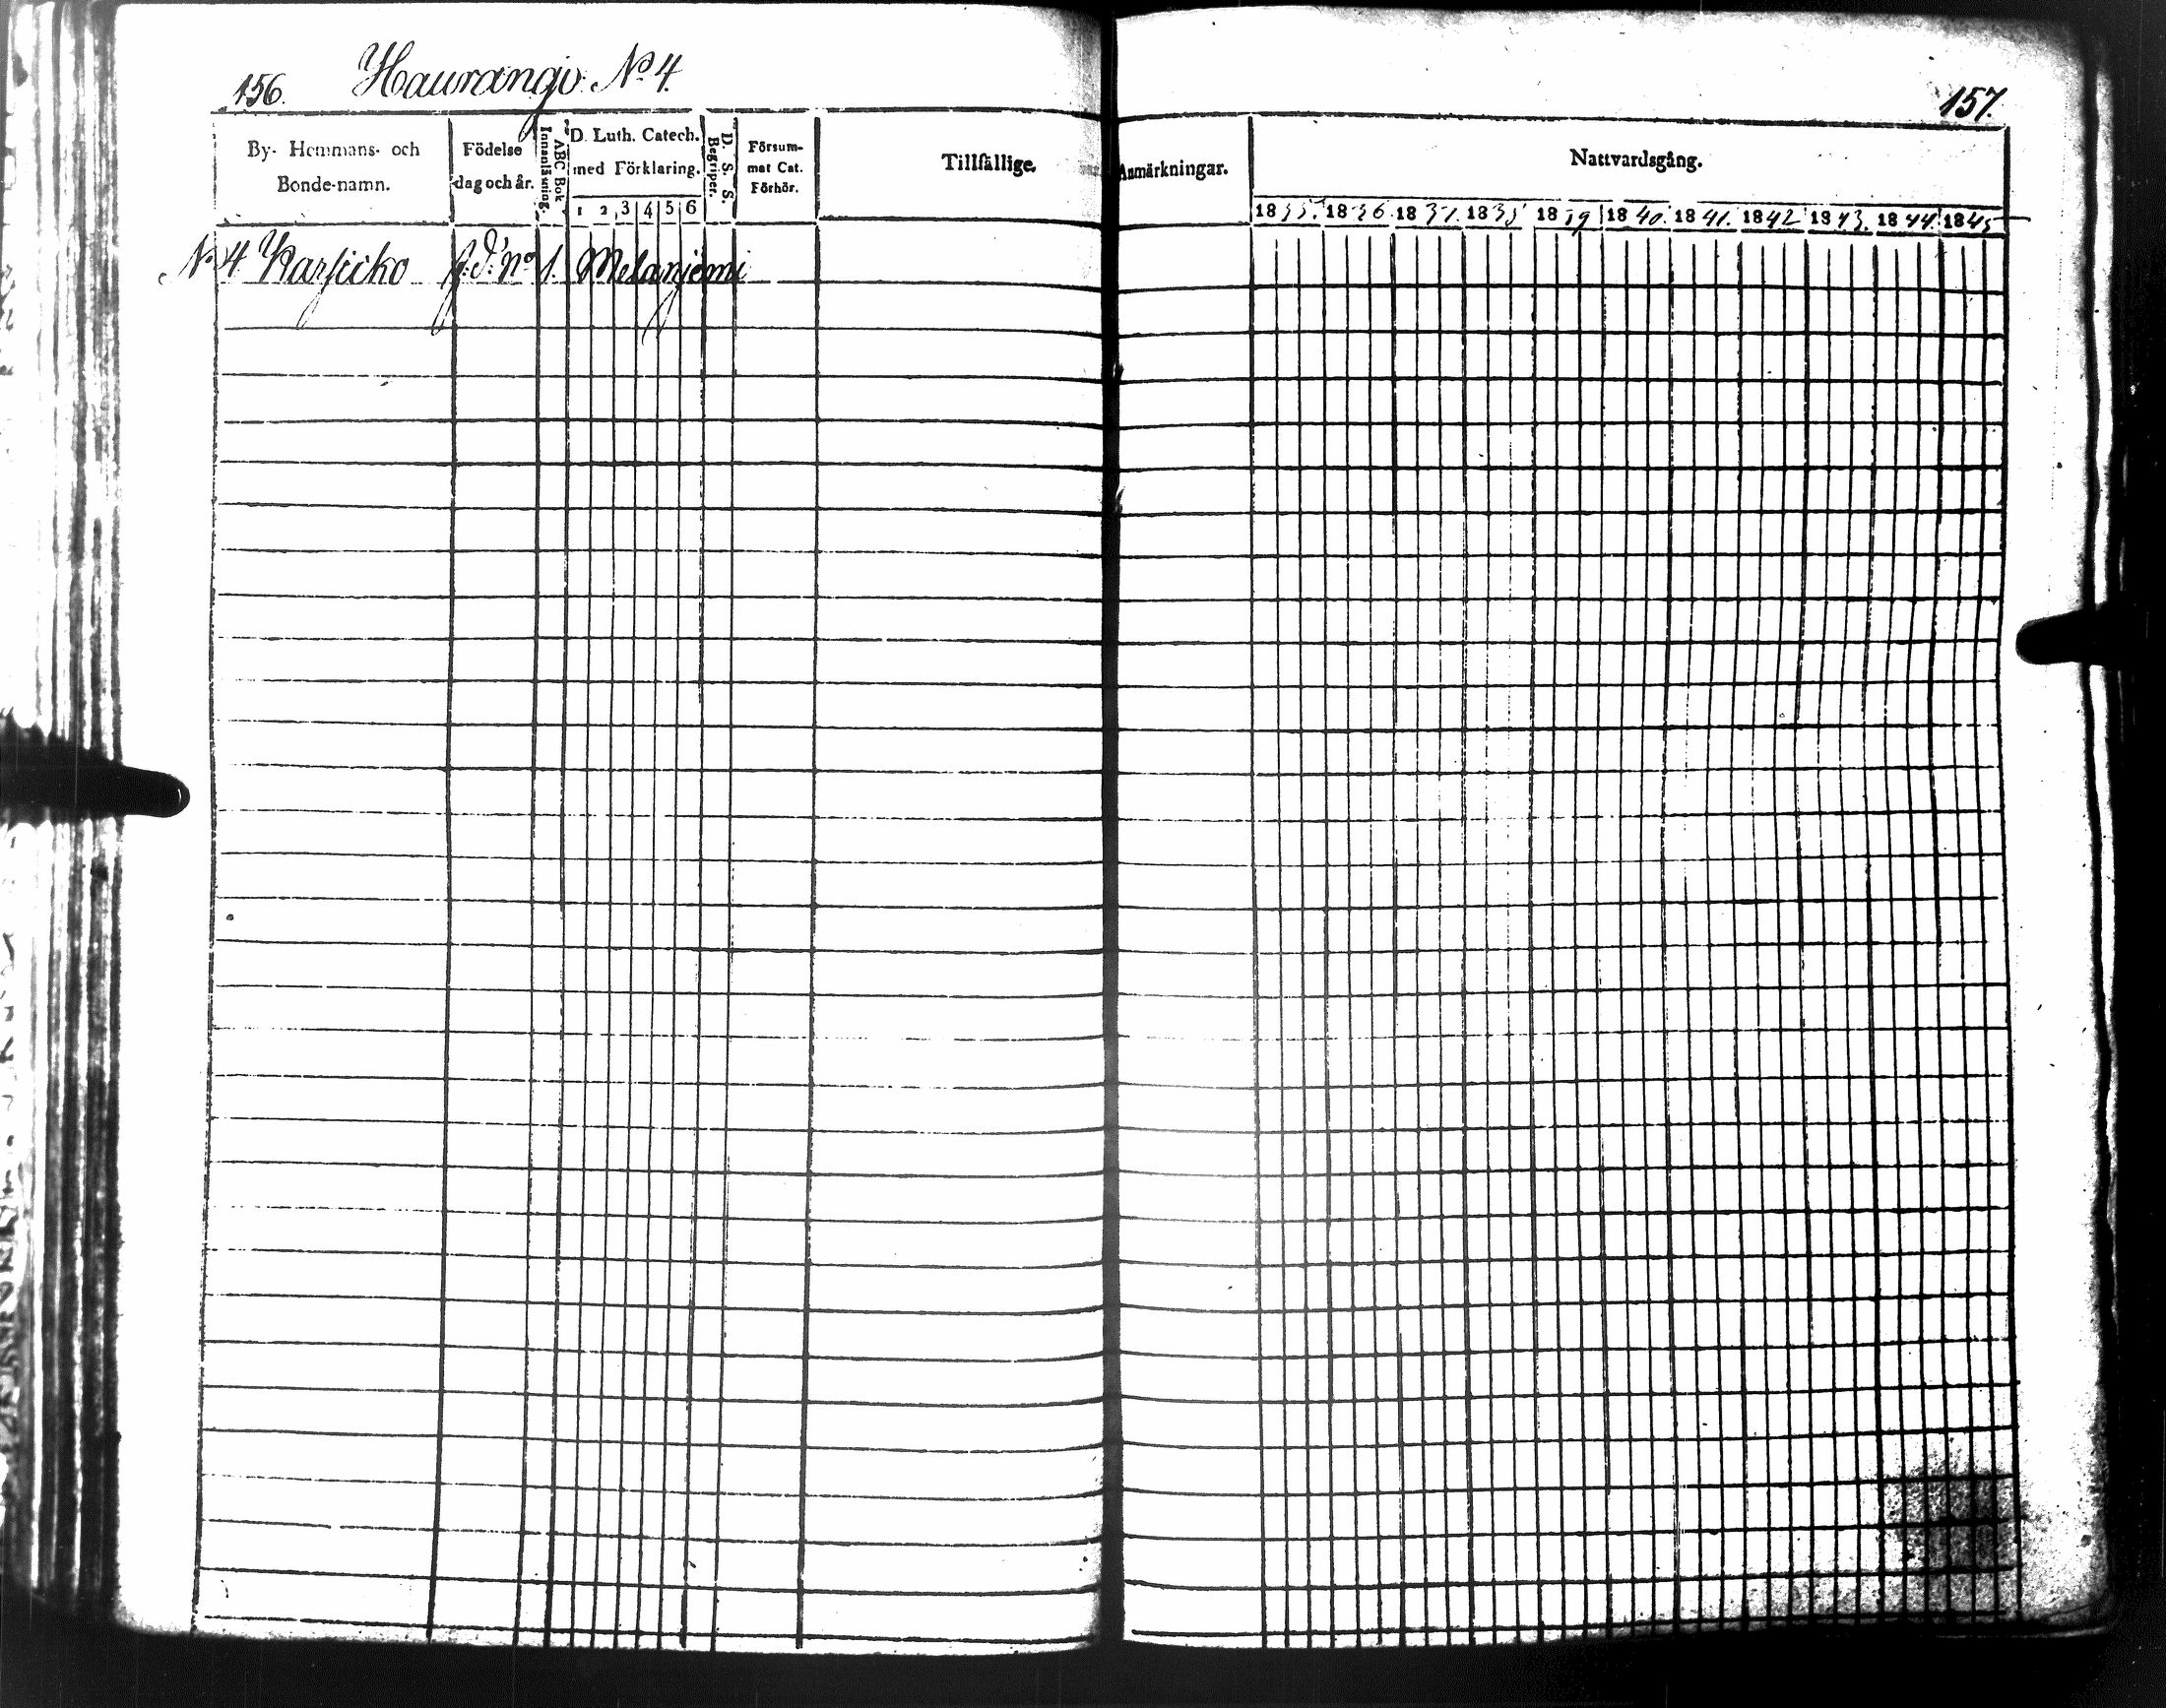 156. Haurangi No 4.
157.
By- Hemmans- och Bonde-namn.
Födelse dag och år.
Innanläsning.
ABC Bok
D. Luth. Catech. med Förklaring.
1 2 3 4 5 6
D. S. S. Begriper.
Försum- mat Cat. Förhör.
Tillfällige
Anmärkningar.
Nattvardsgång.
1835. 1836 1837. 1838 1839 1840. 1841. 1842 1843. 1844. 1845
No 4 Karsicko f. d. No 1. Melanjemi